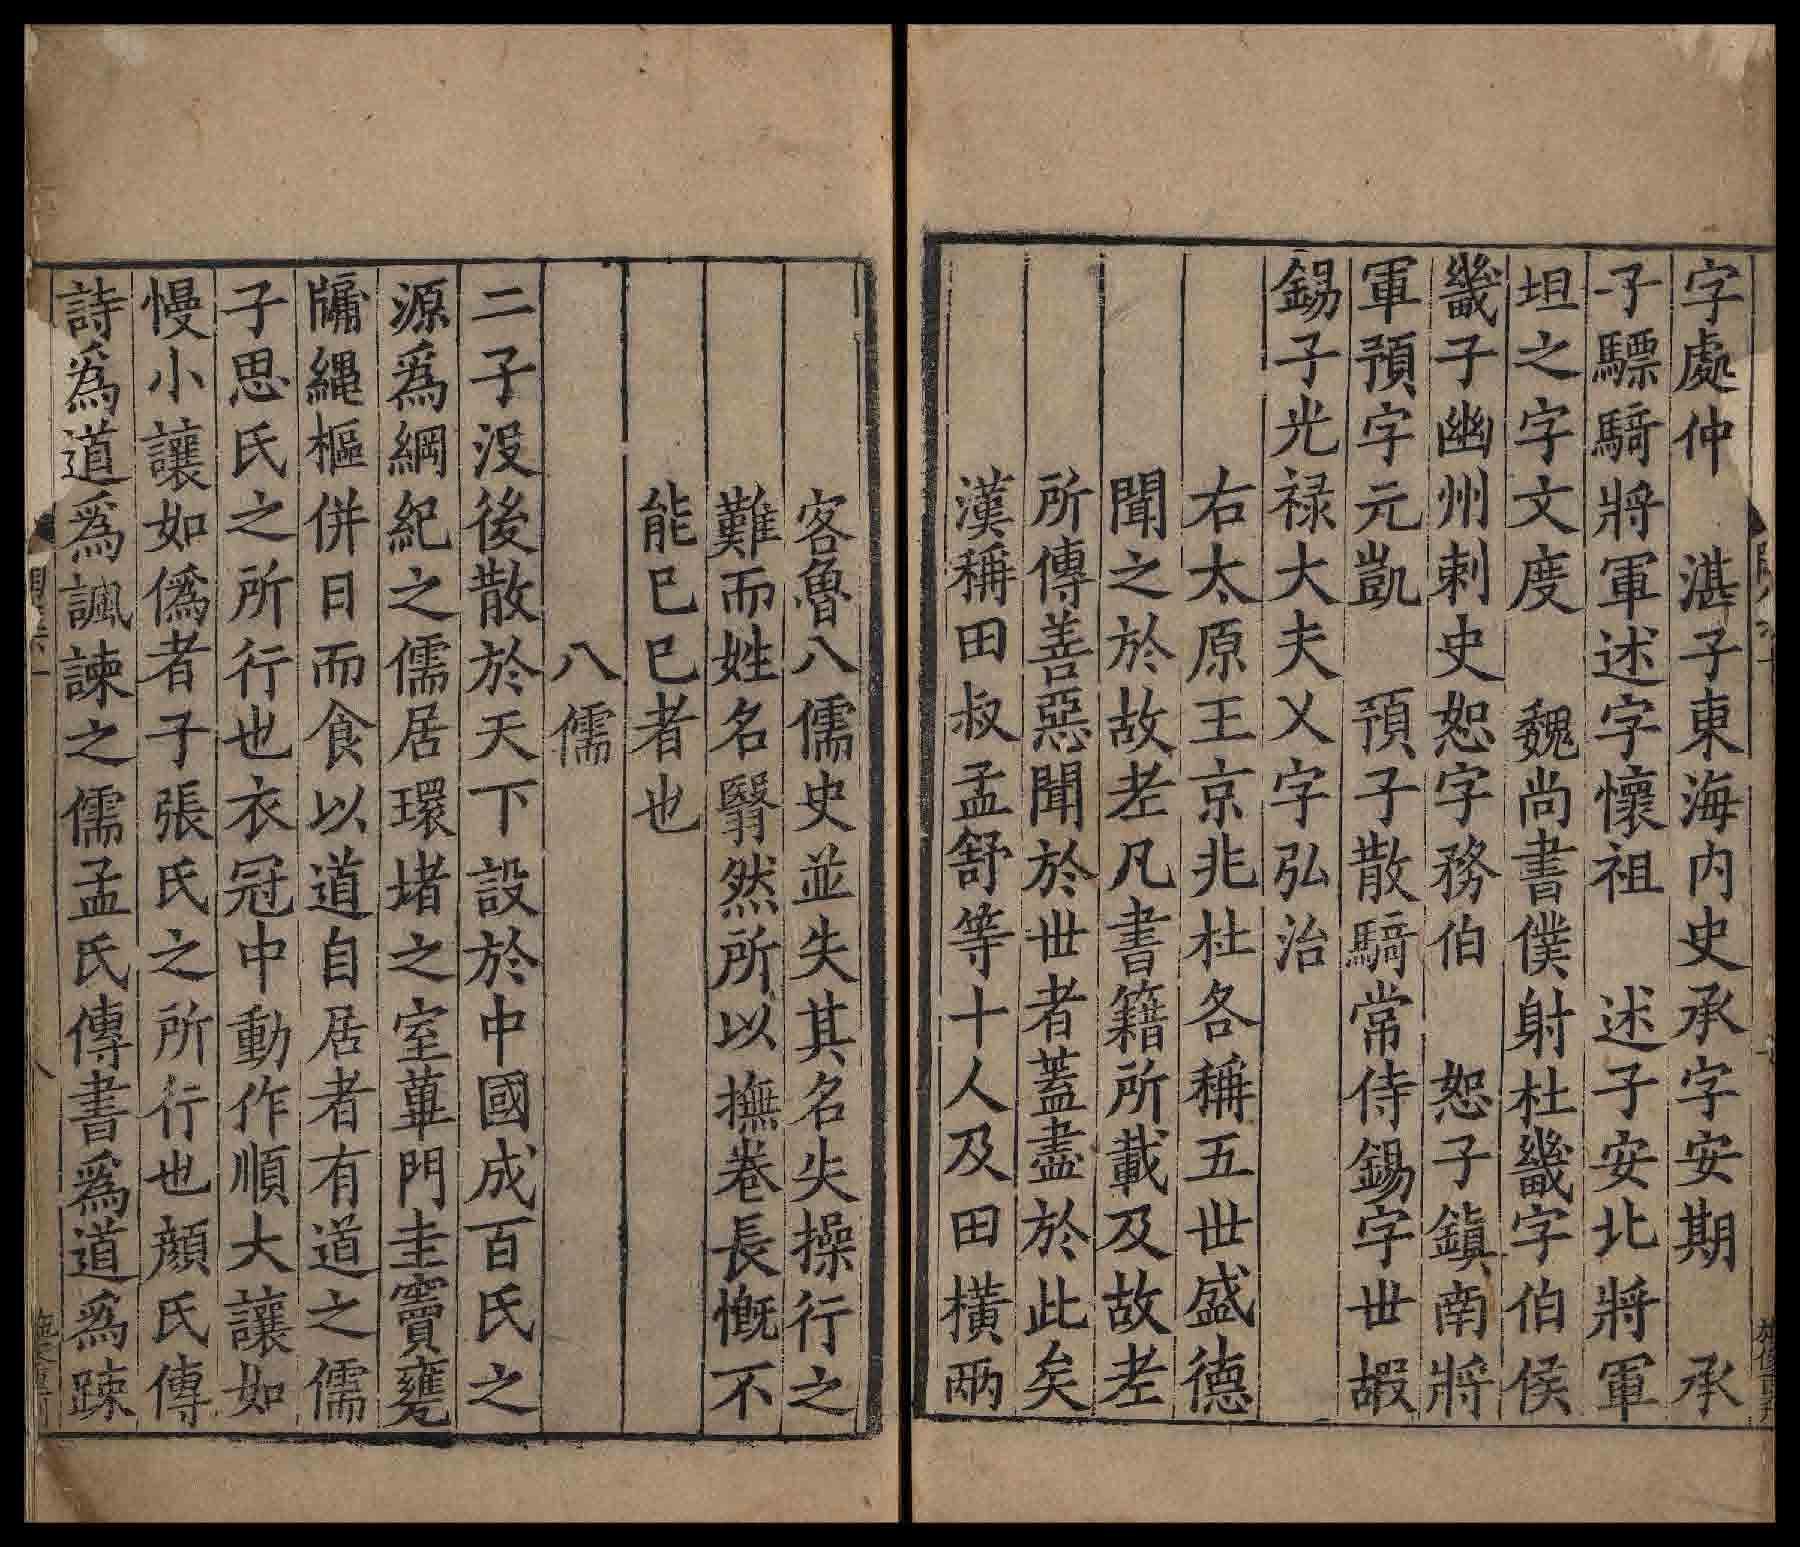 字處仲　湛子東海内史承字安期　承
子驃騎將軍述字懷祖　述子安北將軍
坦之字文度　魏尚書僕射杜畿字伯侯
畿子幽州刺史恕字務伯　恕子鎮南將
軍預字元凱　預子散騎常侍錫字世嘏
錫子光禄大夫乂字弘治
右太原王京兆杜各稱五世盛德
聞之於故老凡書籍所載及故老
所傳善惡聞於世者蓋盡於此矣
漢稱田叔孟舒等十人及田橫兩
客魯八儒史並失其名夫操行之
難而姓名翳然所以撫卷長慨不
能已已者也
八儒
二子没後散於天下設於中國成百氏之
源爲綱紀之儒居環堵之室蓽門圭竇甕
牖繩樞併日而食以道自居者有道之儒
子思氏之所行也衣冠中動作順大讓如
慢小讓如僞者子張氏之所行也顔氏傳
詩爲道爲諷諫之儒孟氏傳書爲道爲疎